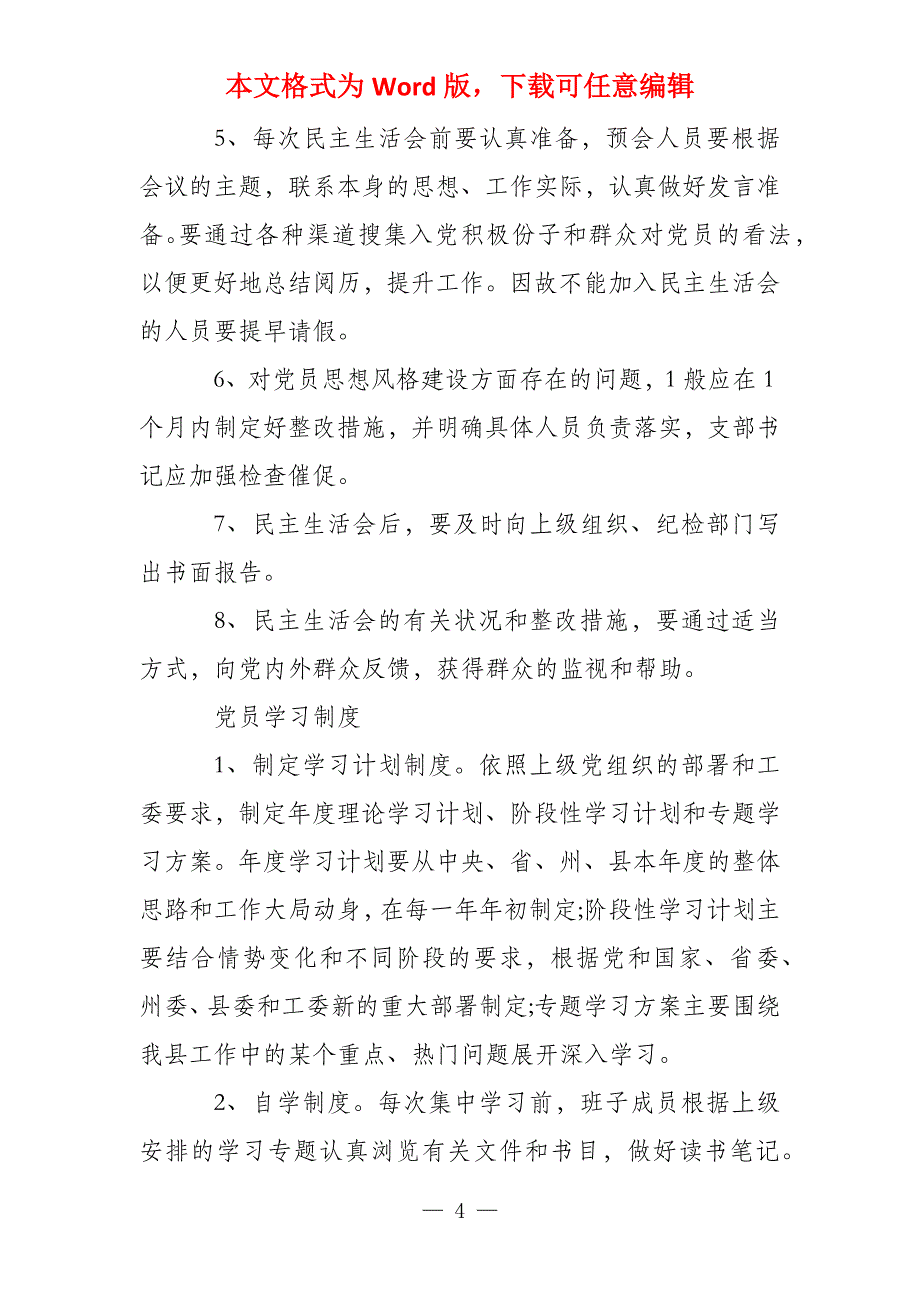 本文格式为 Word 版，下载可任意编辑
5、每次民主生活会前要认真准备，预会人员要根据
会议的主题，联系本身的思想、工作实际，认真做好发言准
备。要通过各种渠道搜集入党积极份子和群众对党员的看法，
以便更好地总结阅历，提升工作。因故不能加入民主生活会
的人员要提早请假。
6、对党员思想风格建设方面存在的问题，1 般应在 1
个月内制定好整改措施，并明确具体人员负责落实，支部书
记应加强检查催促。
7、民主生活会后，要及时向上级组织、纪检部门写
出书面报告。
8、民主生活会的有关状况和整改措施，要通过适当
方式，向党内外群众反馈，获得群众的监视和帮助。
党员学习制度
1、制定学习计划制度。依照上级党组织的部署和工
委要求，制定年度理论学习计划、阶段性学习计划和专题学
习方案。年度学习计划要从中央、省、州、县本年度的整体
思路和工作大局动身，在每一年年初制定;阶段性学习计划主
要结合情势变化和不同阶段的要求，根据党和国家、省委、
州委、县委和工委新的重大部署制定;专题学习方案主要围绕
我县工作中的某个重点、热门问题展开深入学习。
2、自学制度。每次集中学习前，班子成员根据上级
安排的学习专题认真浏览有关文件和书目，做好读书笔记。
— 4 —